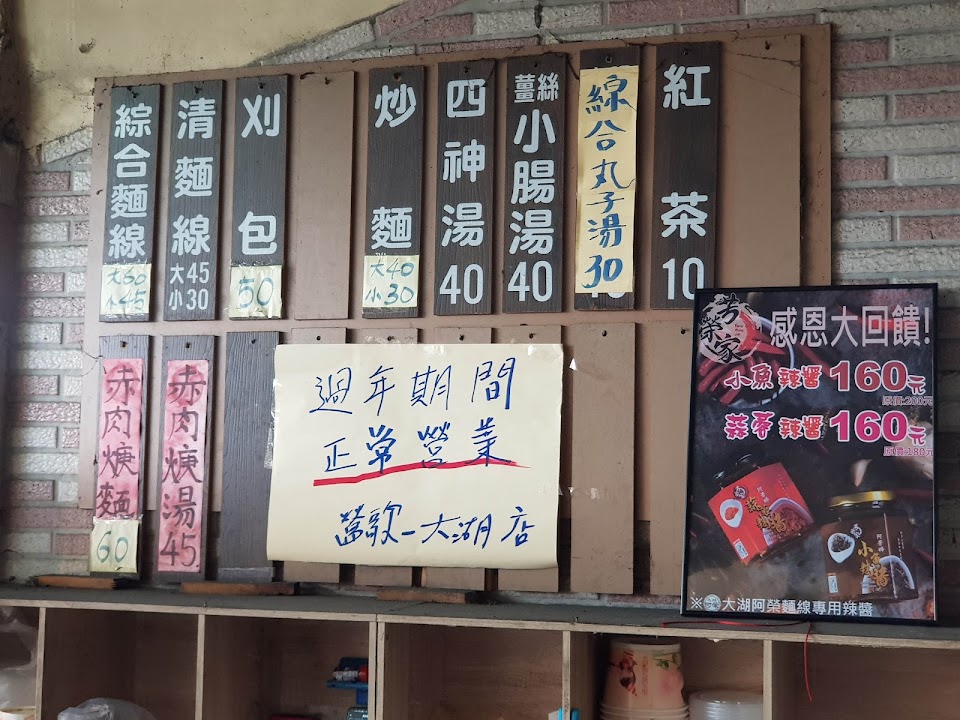 綜合麵線
大60
小45
清麵線
大45
小30
刈包
50
炒麵
大40
小30
四神湯
40
薑絲
小腸湯
40
綜合丸子湯
30
紅茶
10
赤肉焿麵
60
赤肉焿湯
45
過年期間
正常營業
鶯歌-大湖店
感恩大回饋!
小魚辣醬160元
原價:200元
蒜蓉辣醬160元
原價:180元
小魚辣醬
※大湖阿榮麵線專用辣醬